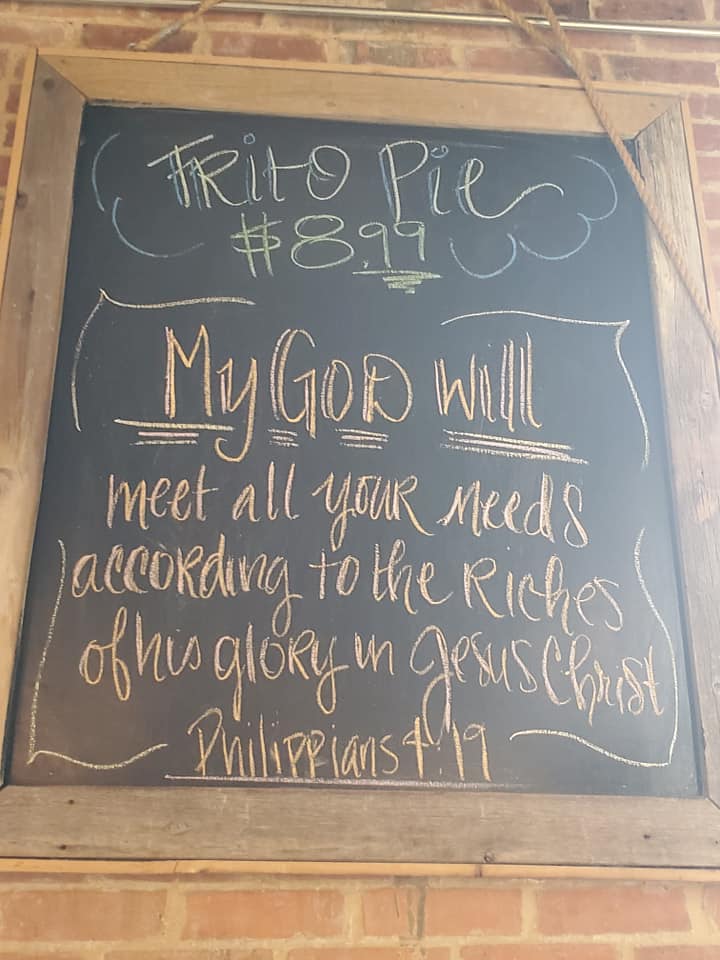 FRitO Pie
$8.99
My GOD will
meet all youR Needs
accoRding to the Riches
of his gloRy in Jesus Christ
Philippians 4:19